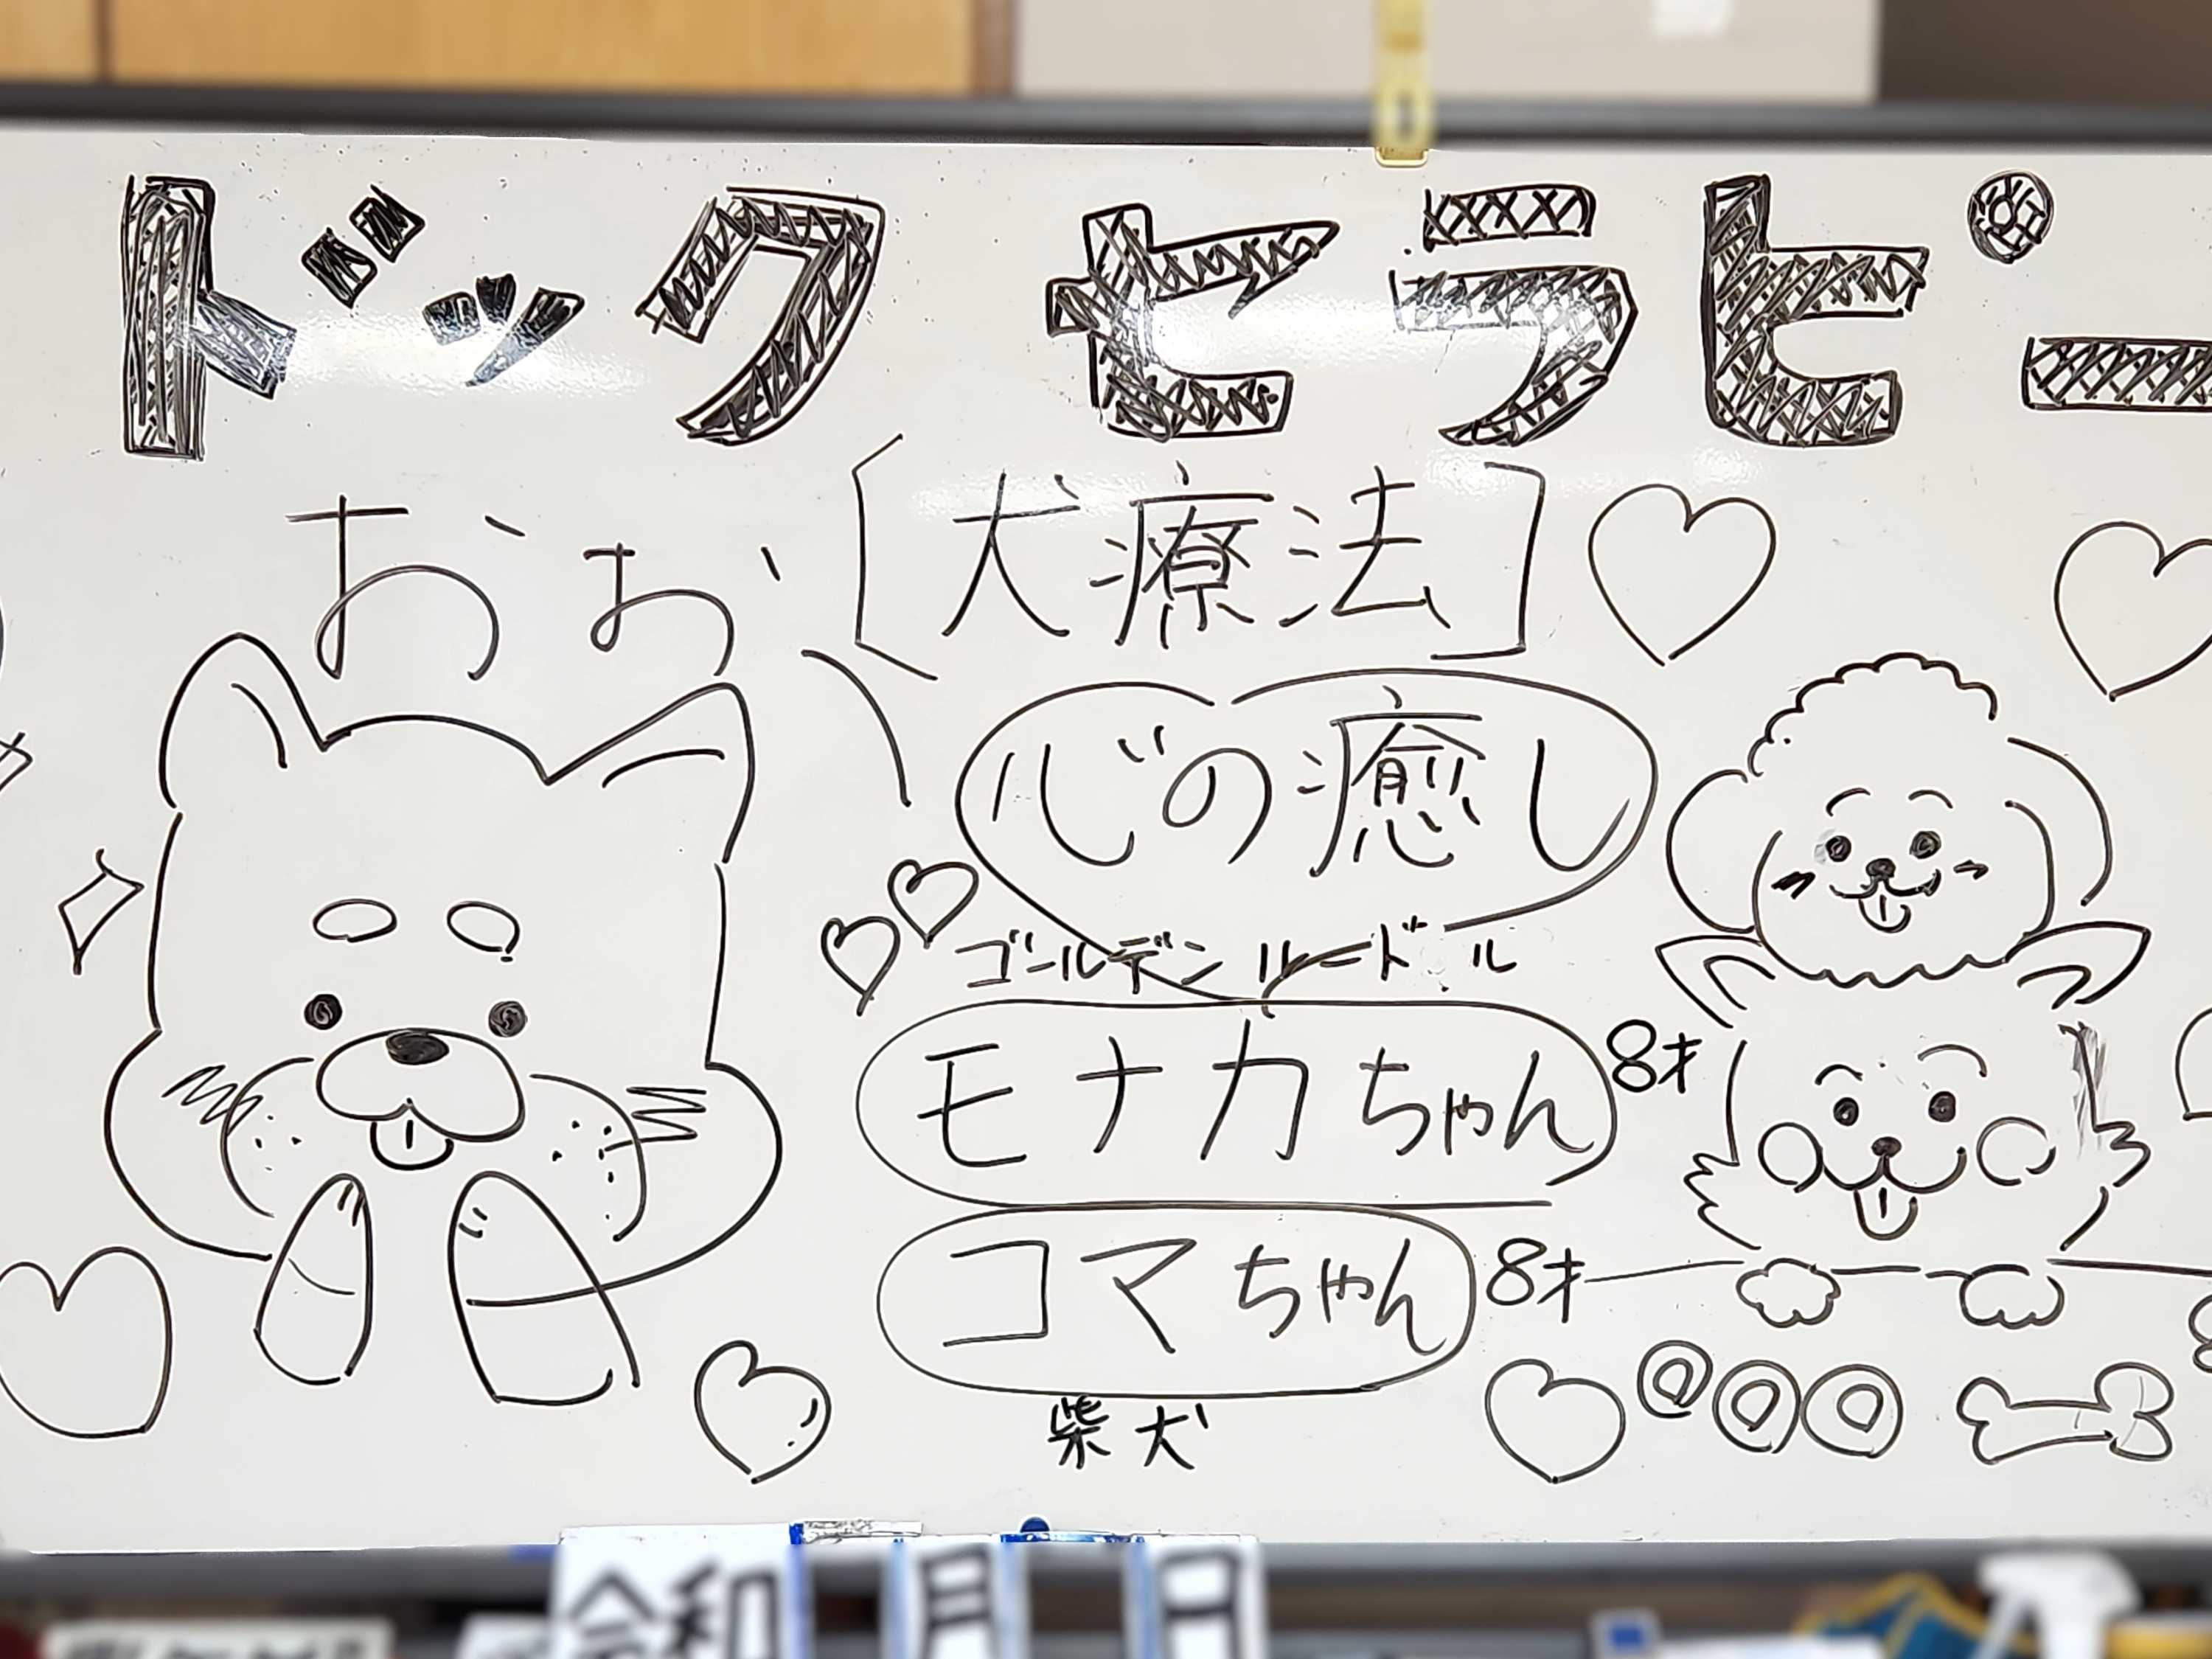 ドックセラピー
おぉ
[犬療法]
心の癒し
ゴールデン
モナカちゃん 8才
コマちゃん 8才
柴犬
令和 月 日